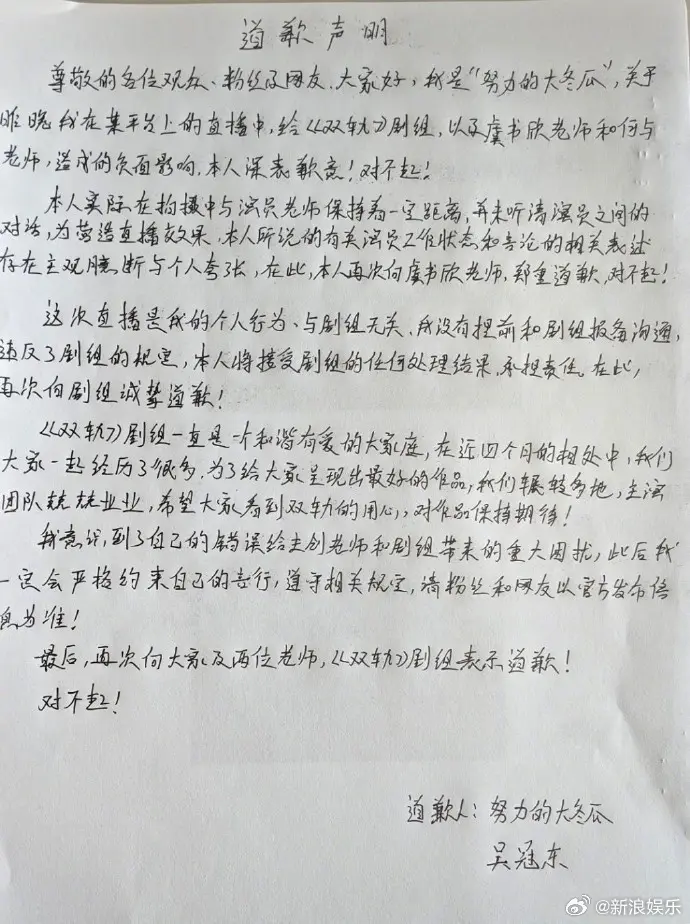 道歉声明
尊敬的各位观众、粉丝及网友、大家好，我是“努力的大冬瓜”，关于
昨晚我在某平台上的直播中，给《双轨》剧组，以及虞书欣老师和何与
老师，造成的负面影响，本人深表歉意！对不起！
本人实际在拍摄中与演员老师保持着一定距离，并未听清演员之间的
对话，为营造直播效果，本人所说的有关演员工作状态和言论的相关表述
存在主观臆断与个人夸张，在此，本人再次向虞书欣老师，郑重道歉，对不起！
这次直播是我的个人行为、与剧组无关，我没有提前和剧组报备沟通，
违反了剧组的规定，本人将接受剧组的任何处理结果，承担责任。在此，
再次向剧组诚挚道歉！
《双轨》剧组一直是一个和谐有爱的大家庭，在近四个月的相处中，我们
大家一起经历了很多，为了给大家呈现出最好的作品，我们辗转多地，主演
团队兢兢业业，希望大家看到双轨的用心，对作品保持期待！
我意识到了自己的错误给主创老师和剧组带来的重大困扰，此后我
一定会严格约束自己的言行，遵守相关规定，请粉丝和网友以官方发布信
息为准！
最后，再次向大家及两位老师，《双轨》剧组表示道歉！
对不起！
道歉人：努力的大冬瓜
吴冠东
@新浪娱乐